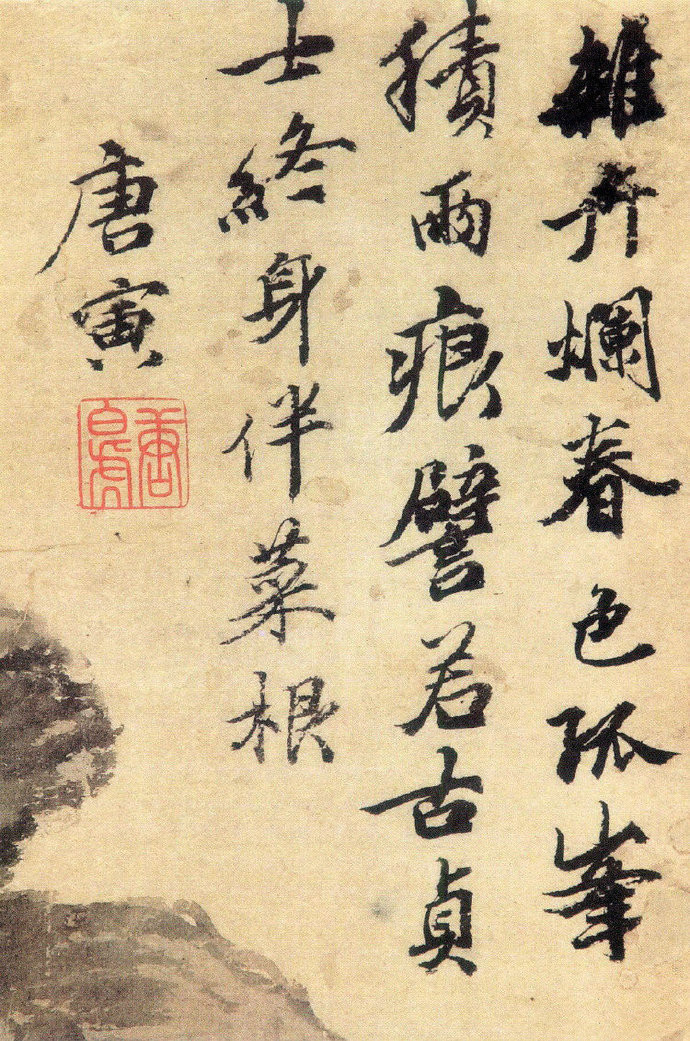 雜卉爛春色孤峯
積雨痕譬若古貞
士終身伴菜根
唐寅
唐寅